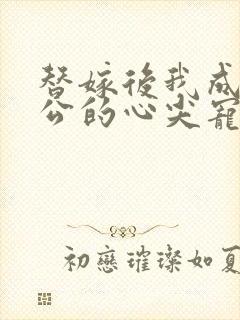 替嫁後我成
公的心尖寵
初戀璀璨如夏